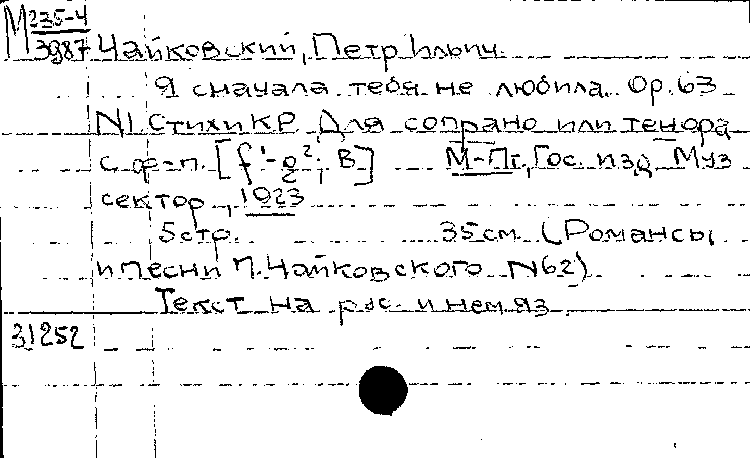 М 235-4
3987 Чайковский, Петр Ильич.
Я сначала тебя не любила. Op. 63
N1 Стихи К.Р. Для сопрано или тенора
с ф-п. [f'-g²; B] М-Пг, Гос. изд. Муз
сектор, 1923
5 стр. 35 см. (Романсы
и песни П. Чайковского N62)
Текст на рус. и нем яз.
31252